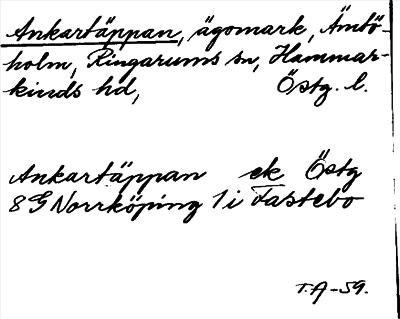 Ankartäppan, ägomark, Ämtö-
holm, Ringarums sn, Hammar-
kinds hd, Östg. l.
Ankartäppan ek Östg
8G Norrköping 1 i Fastebo
T.A-59.